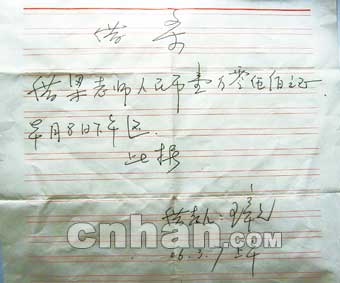 借条
借梁老师人民币壹万零伍佰元正.
月8日下午还.
此据
借款人:
cnhan.com
06.3.7